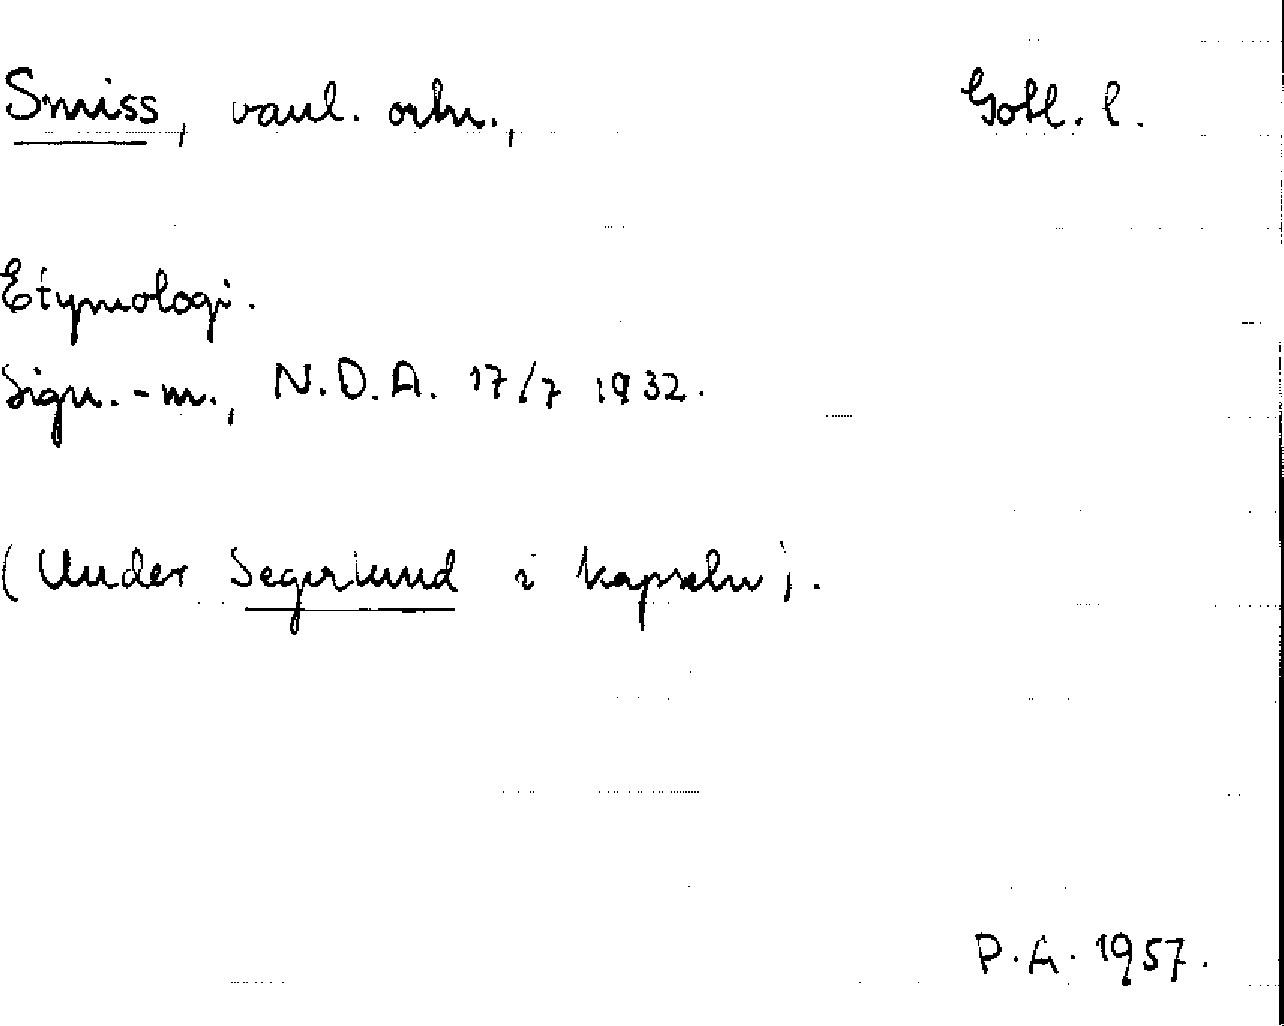 Smiss, vanl. ortn., Gotl. l.
Etymologi.
Sign. -m., N.D.A. 17/7 1932.
(Under Segerlund i kapseln).
P.A. 1957.